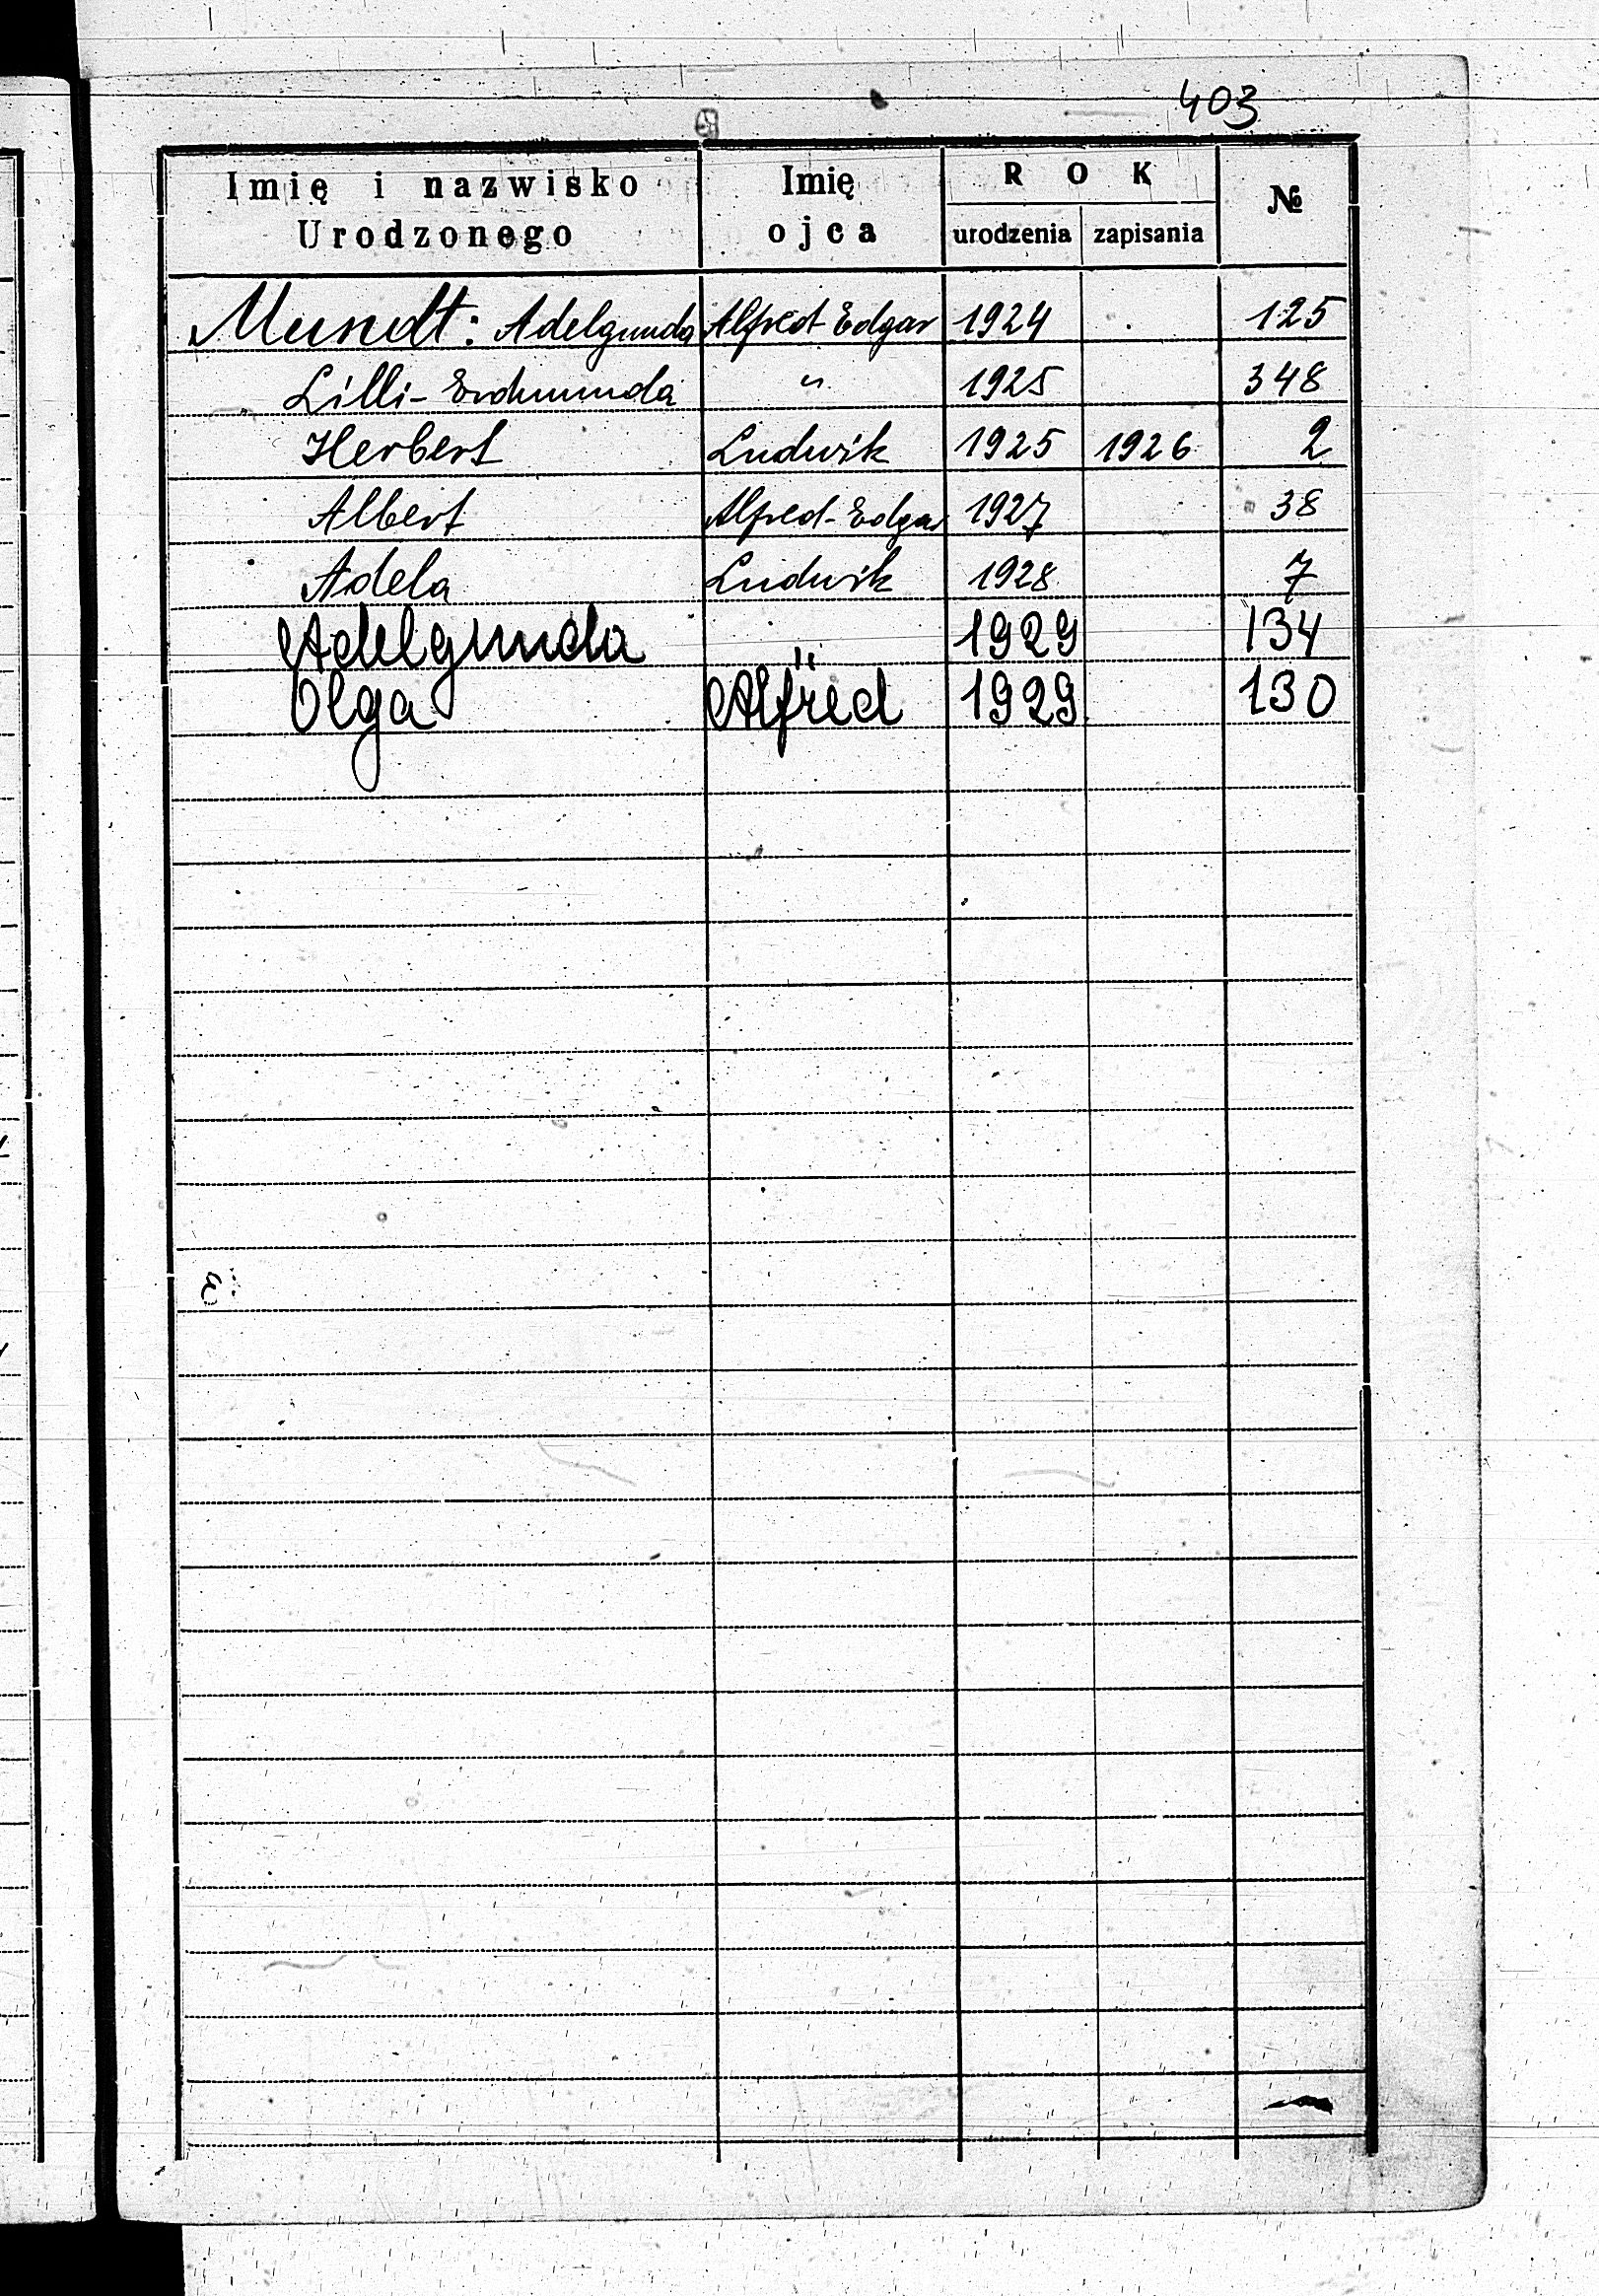 403
Imię i nazwisko Urodzonego Imię ojca ROK urodzenia zapisania №
Mundt: Adelgunda Alfred Edgar 1924 125
Lilli-Erdmunda " 1925 348
Herbert Ludwik 1925 1926 2
Albert Alfred-Edgar 1927 38
Adela Ludwik 1928 7
Adelgunda " 1929 134
Olga Alfred 1929 130